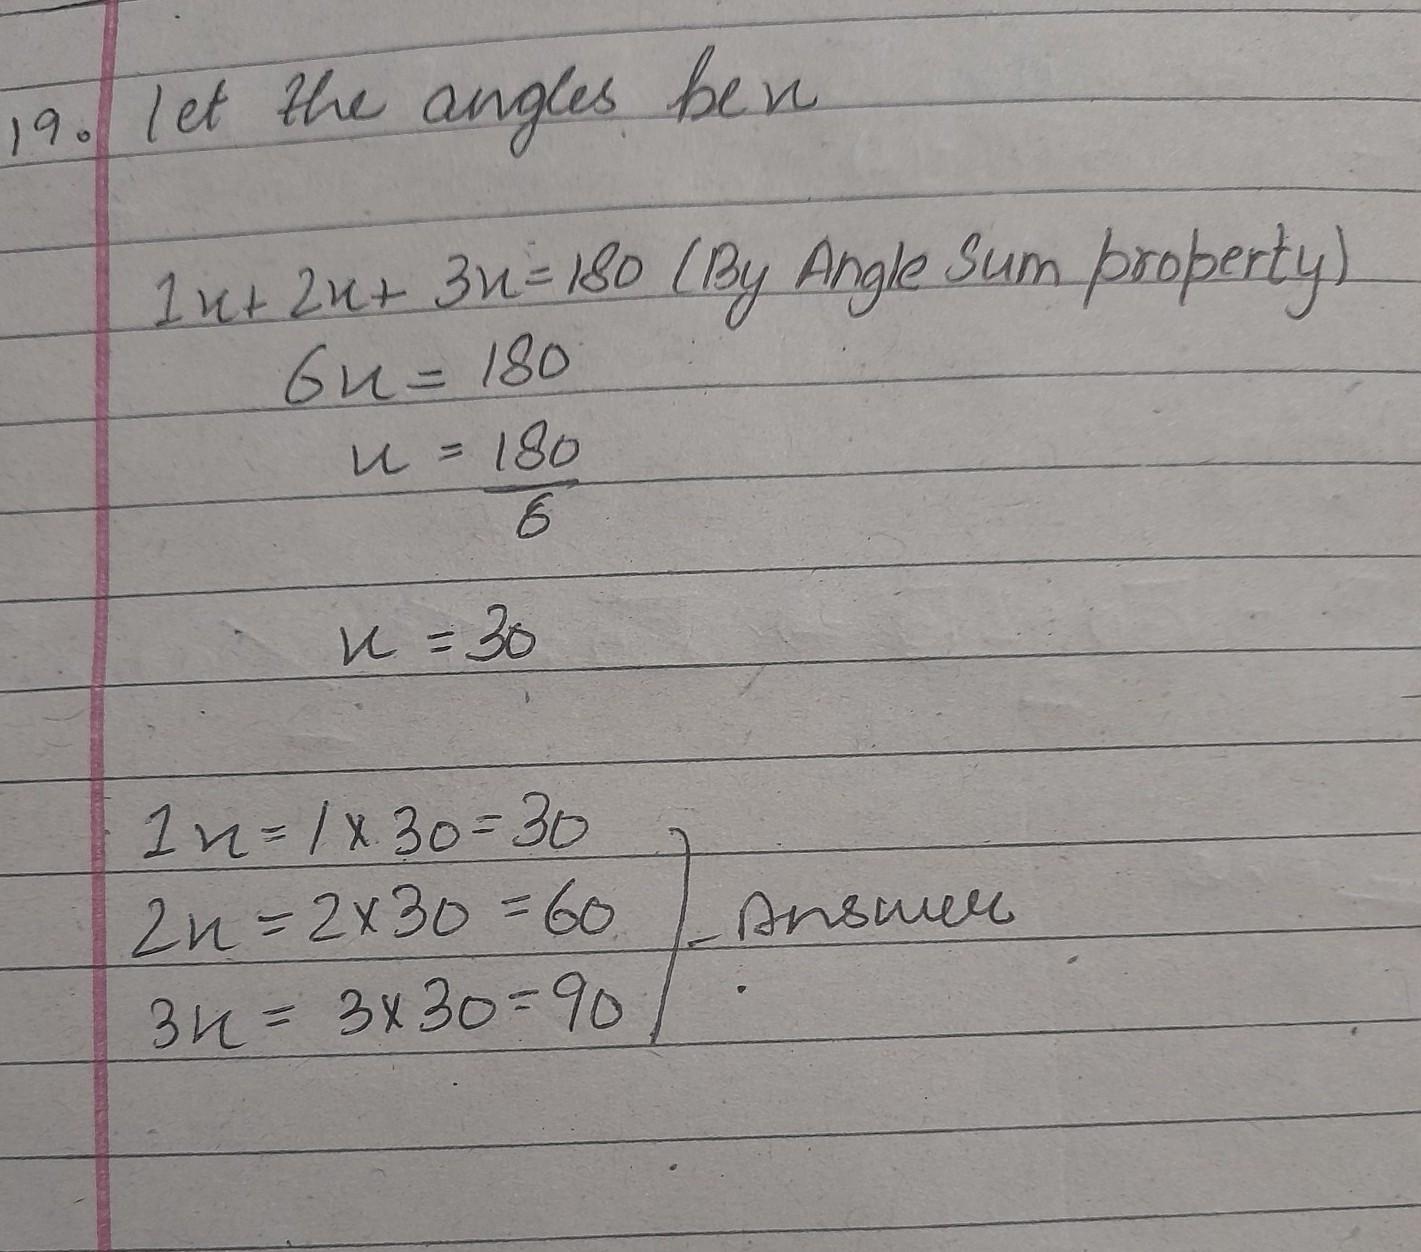 19. let the angles be x
1x + 2x + 3x = 180 (By Angle Sum property)
6x = 180
x = 180
6
x = 30
1x = 1 × 30 = 30
2x = 2 × 30 = 60
3x = 3 × 30 = 90
- Answer